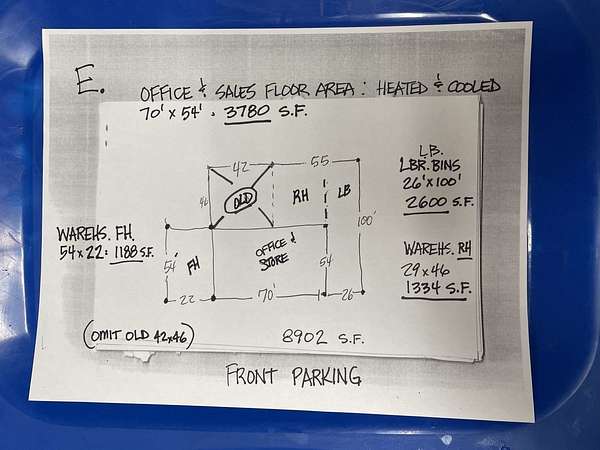 E.
OFFICE & SALES FLOOR AREA: HEATED & COOLED
70' x 54' = 3780 S.F.
L.B.
LBR. BINS
26' x 100'
2600 S.F.
42
55
46
OLD
RH
LB
100'
WAREHS. FH.
54 x 22 = 1188 S.F.
54'
FH
OFFICE &
STORE
54
WAREHS. RH
29 x 46
1334 S.F.
22
70'
26
(OMIT OLD 42x46)
8902 S.F.
FRONT PARKING